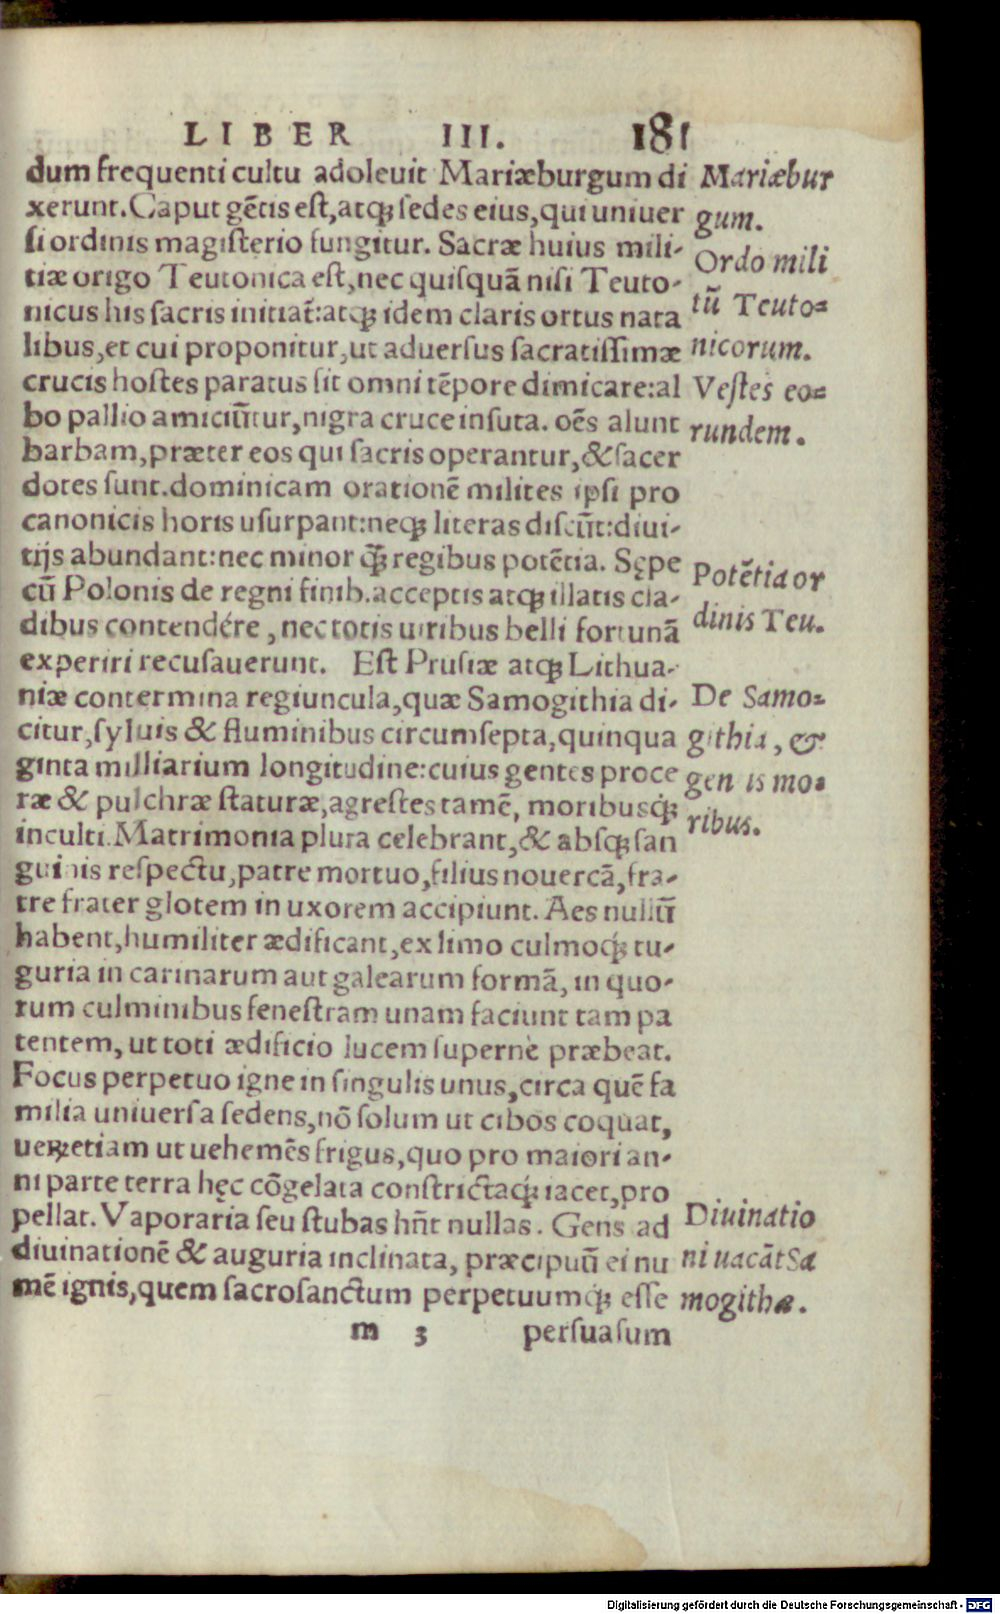 LIBER III. 181
dum frequenti cultu adoleuit Mariæburgum di
xerunt. Caput gẽtis est, atqꝫ sedes eius, qui uniuer
si ordinis magisterio fungitur. Sacræ huius mili-
tiæ origo Teutonica est, nec quisquã nisi Teuto-
nicus his sacris initiat̃: atqꝫ idem claris ortus nata
libus, et cui proponitur, ut aduersus sacratissimæ
crucis hostes paratus sit omni tẽpore dimicare: al
bo pallio amiciũtur, nigra cruce insuta. oẽs alunt
barbam, præter eos qui sacris operantur, & sacer
dotes sunt. dominicam orationẽ milites ipsi pro
canonicis horis usurpant: neqꝫ literas discũt: diui-
tijs abundant: nec minor q̃ꝫ regibus potẽtia. Sępe
cũ Polonis de regni finib. acceptis atqꝫ illatis cla-
dibus contendére, nec totis uiribus belli fortunã
experiri recusauerunt. Est Prusiæ atqꝫ Lithua-
niæ contermina regiuncula, quæ Samogithia di-
citur, syluis & fluminibus circumsepta, quinqua
ginta milliarium longitudine: cuius gentes proce
ræ & pulchræ staturæ, agrestes tamẽ, moribusqꝫ
inculti. Matrimonia plura celebrant, & absqꝫ san
guinis respectu, patre mortuo, filius nouercã, fra-
tre frater glotem in uxorem accipiunt. Aes nullũ
habent, humiliter ædificant, ex limo culmoqꝫ tu-
guria in carinarum aut galearum formã, in quo-
rum culminibus fenestram unam faciunt tam pa
tentem, ut toti ædificio lucem superne præbeat.
Focus perpetuo igne in singulis unus, circa quẽ fa
milia uniuersa sedens, nõ solum ut cibos coquat,
ueꝝ etiam ut uehemẽs frigus, quo pro maiori an-
ni parte terra hęc cõgelata constrictaqꝫ iacet, pro
pellat. Vaporaria seu stubas hñt nullas. Gens ad
diuinationẽ & auguria inclinata, præcipuũ ei nu
mẽ ignis, quem sacrosanctum perpetuumqꝫ esse
m 3 persuasum
Mariæbur
gum.
Ordo mili
tũ Teuto-
nicorum.
Vestes eo-
rundem.
Potẽtia or
dinis Teu.
De Samo-
githia, &
gentis mo-
ribus.
Diuinatio
ni uacãt Sa
mogithæ.
Digitalisierung gefördert durch die Deutsche Forschungsgemeinschaft - DFG